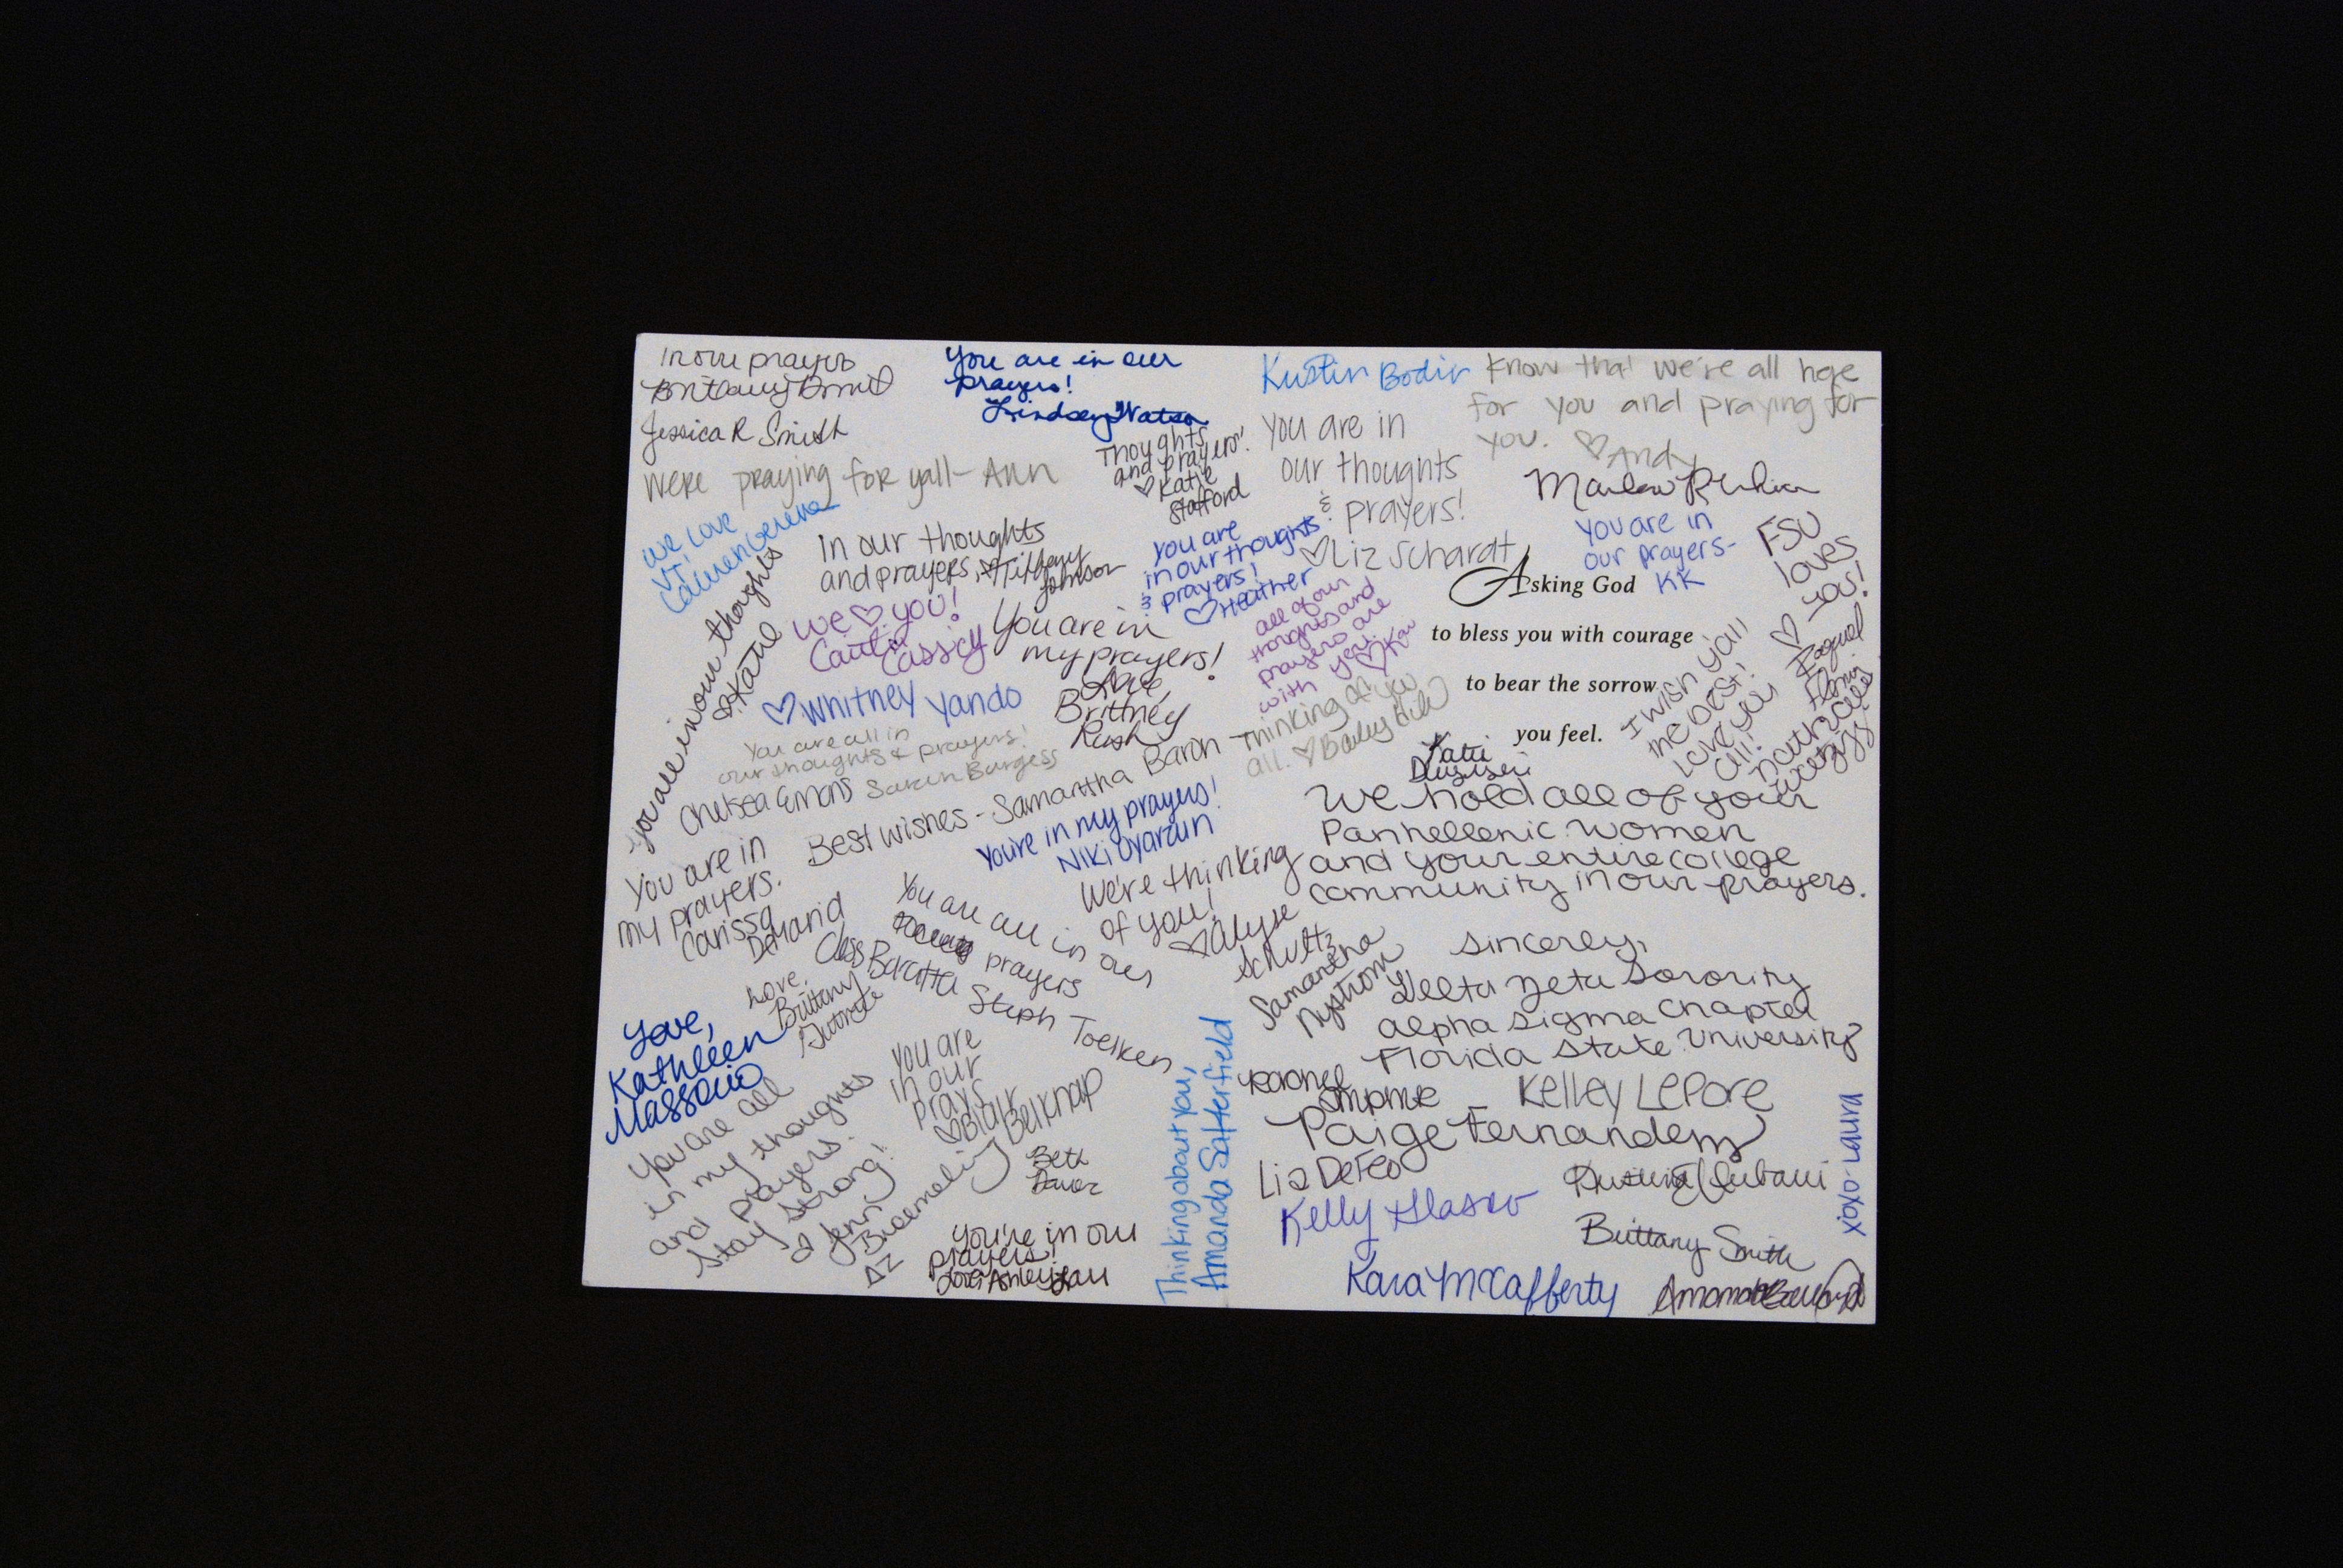 In our prayers
Jessica R Smith
We're praying for yall - Ann
We love
VT,
You are in our thoughts
Katie
You are in our
prayers!
Lindsey Watson
Thoughts
and prayers!
♡ Katie
Stafford
In our thoughts
and prayers, Tiffany
Johnson
You are
in our thoughts
& prayers!
♡ Heather
We ♡ you!
Caitlin
Cassidy
You are in
my prayers!
Love
Brittney
Rush
♡ Whitney Yando
You are all in
our thoughts & prayers!
Sarah Burgess
Chelsea Emons
Best wishes - Samantha Baron
You're in my prayers!
Niki Oyarzun
You are in
my prayers.
Carissa
Demarid
We're thinking
of you!
♡ Alyse
Schultz
You are all in our
prayers
Steph Toelken
Love,
Brittany
Love,
Kathleen
Massaro
You are all
in my thoughts
and prayers.
Stay strong!
Jenny
ΔZ
You are
in our
prays
♡ Blair
Belknap
Beth
You're in our
prayers!
Love, Ashley
Thinking about you,
Amanda Satterfield
Kristin Bodin
Know that we're all here
for you and praying for
you. ♡ Andy
You are in
our thoughts
& prayers!
♡ Liz Schardt
You are in
our prayers-
KK
FSU
loves
you!
♡
Raquel
all of our
thoughts and
prayers are
with you.
♡ Kai
Thinking of you
all. ♡ Bailey
Asking God
to bless you with courage
to bear the sorrow
you feel.
I wish y'all
the best!
Love you
all!
Katie
We hold all of your
Panhellenic women
and your entire college
community in our prayers.
Sincerely,
Delta Zeta Sorority
Alpha Sigma Chapter
Florida State University
Samantha
Nystrom
Kelley LePore
Paige Fernandez
Liz DeFeo
Kelly Glasno
Brittany Smith
Kara McCafferty
xoxo- Laura